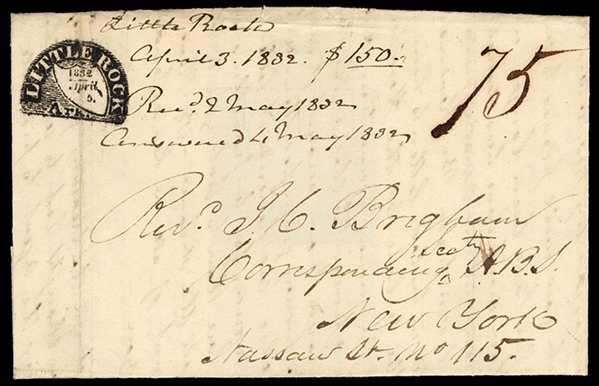 LITTLE ROCK
1832
April
5.
Ark.
Little Rock
April 3. 1832. $150.
Recd. 2 May 1832
Answered 4 May 1832
75
Revd. J. C. Brigham
Corresponding secty A.B.S.
New York
Nassaw St. No 115.